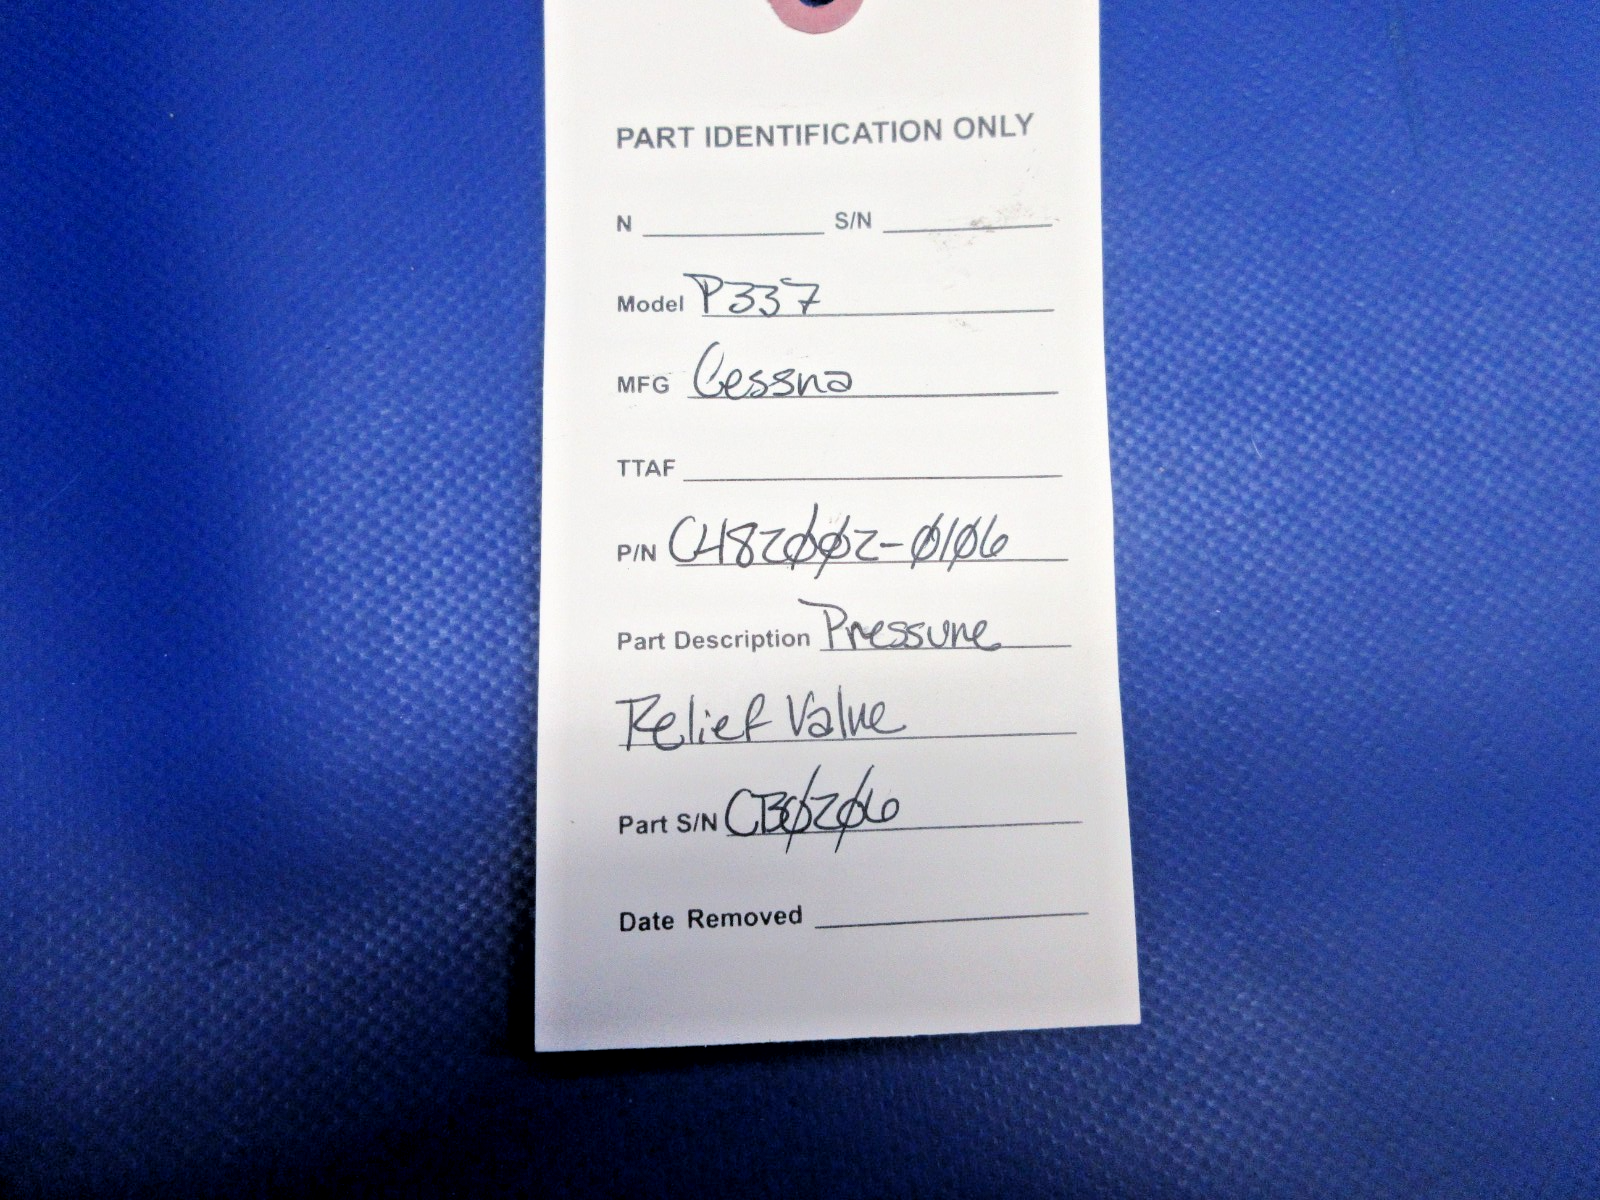 PART IDENTIFICATION ONLY
N S/N
Model P337
MFG Cessna
TTAF
P/N C482002-0106
Part Description Pressure
Relief Valve
Part S/N CB0206
Date Removed